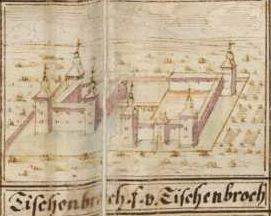 Tischenbroch · f · v · Tischenbroch